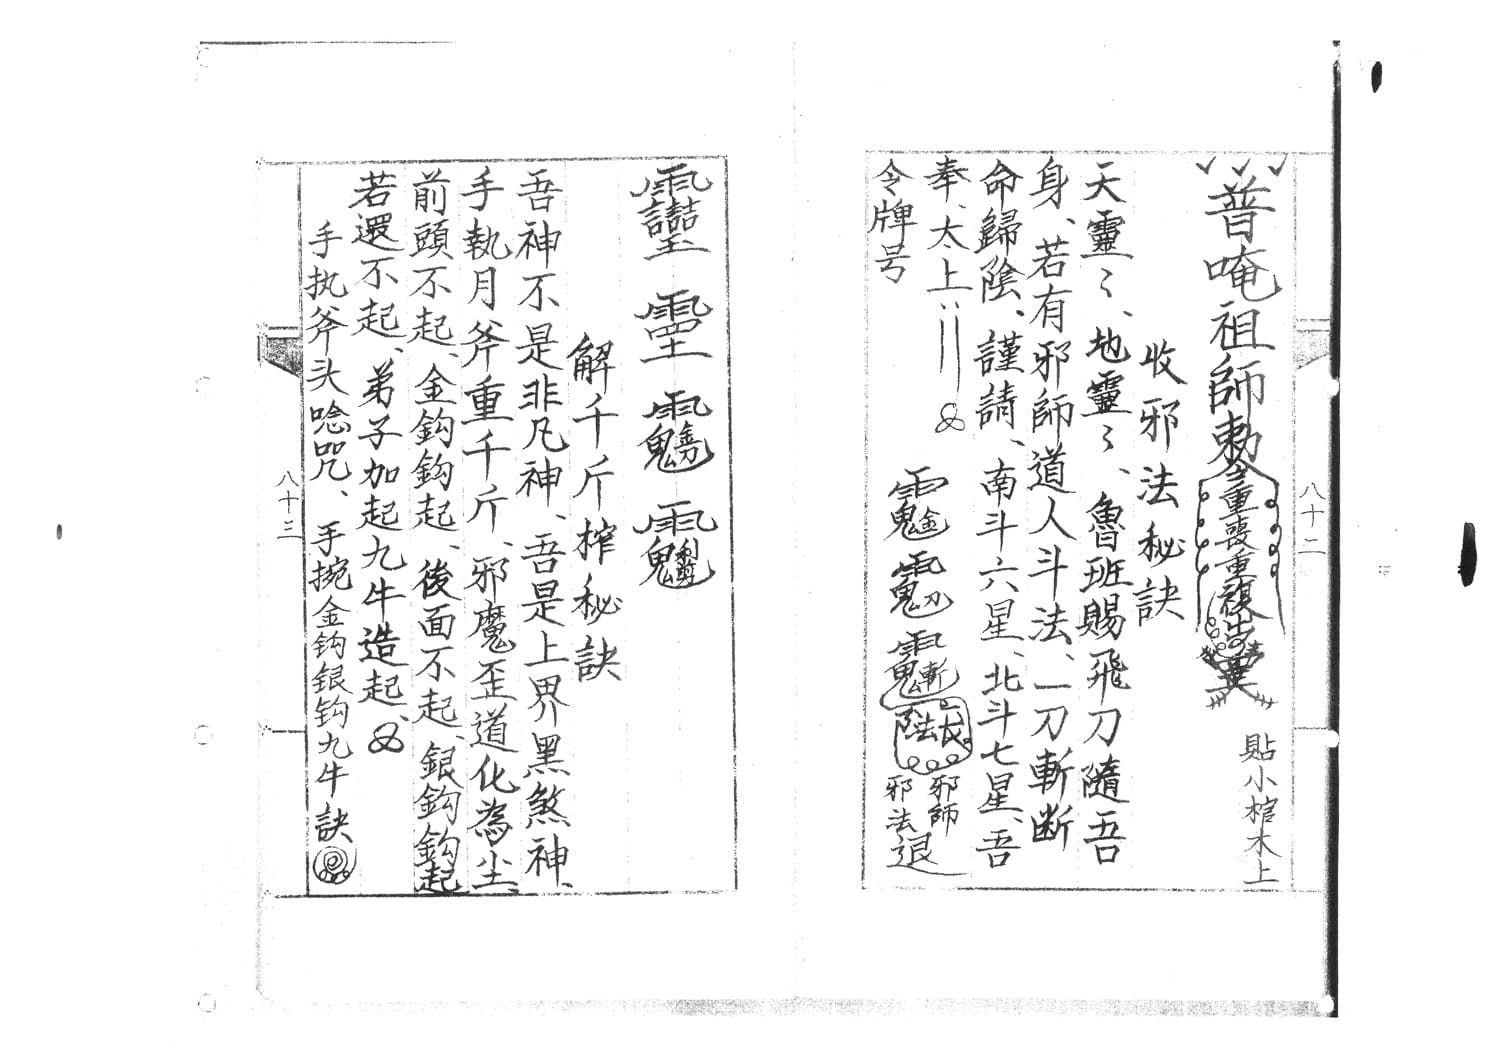 普唵祖師勅令重喪重復出
貼小棺木上
收邪法秘訣
天靈〻、地靈〻、魯班賜飛刀隨吾
身、若有邪師道人斗法、一刀斬断
命歸陰、謹請、南斗六星、北斗七星、吾
奉、太上
令牌号
邪師
邪法退
八十二
解千斤榨秘訣
吾神不是非凡神、吾是上界黑煞神、
手執月斧重千斤、邪魔歪道化為尘、
前頭不起、金鈎鈎起、後面不起、銀鈎鈎起
若還不起、弟子加起九牛造起、
手执斧头唸咒、手挽金鈎银鈎九牛訣
八十三